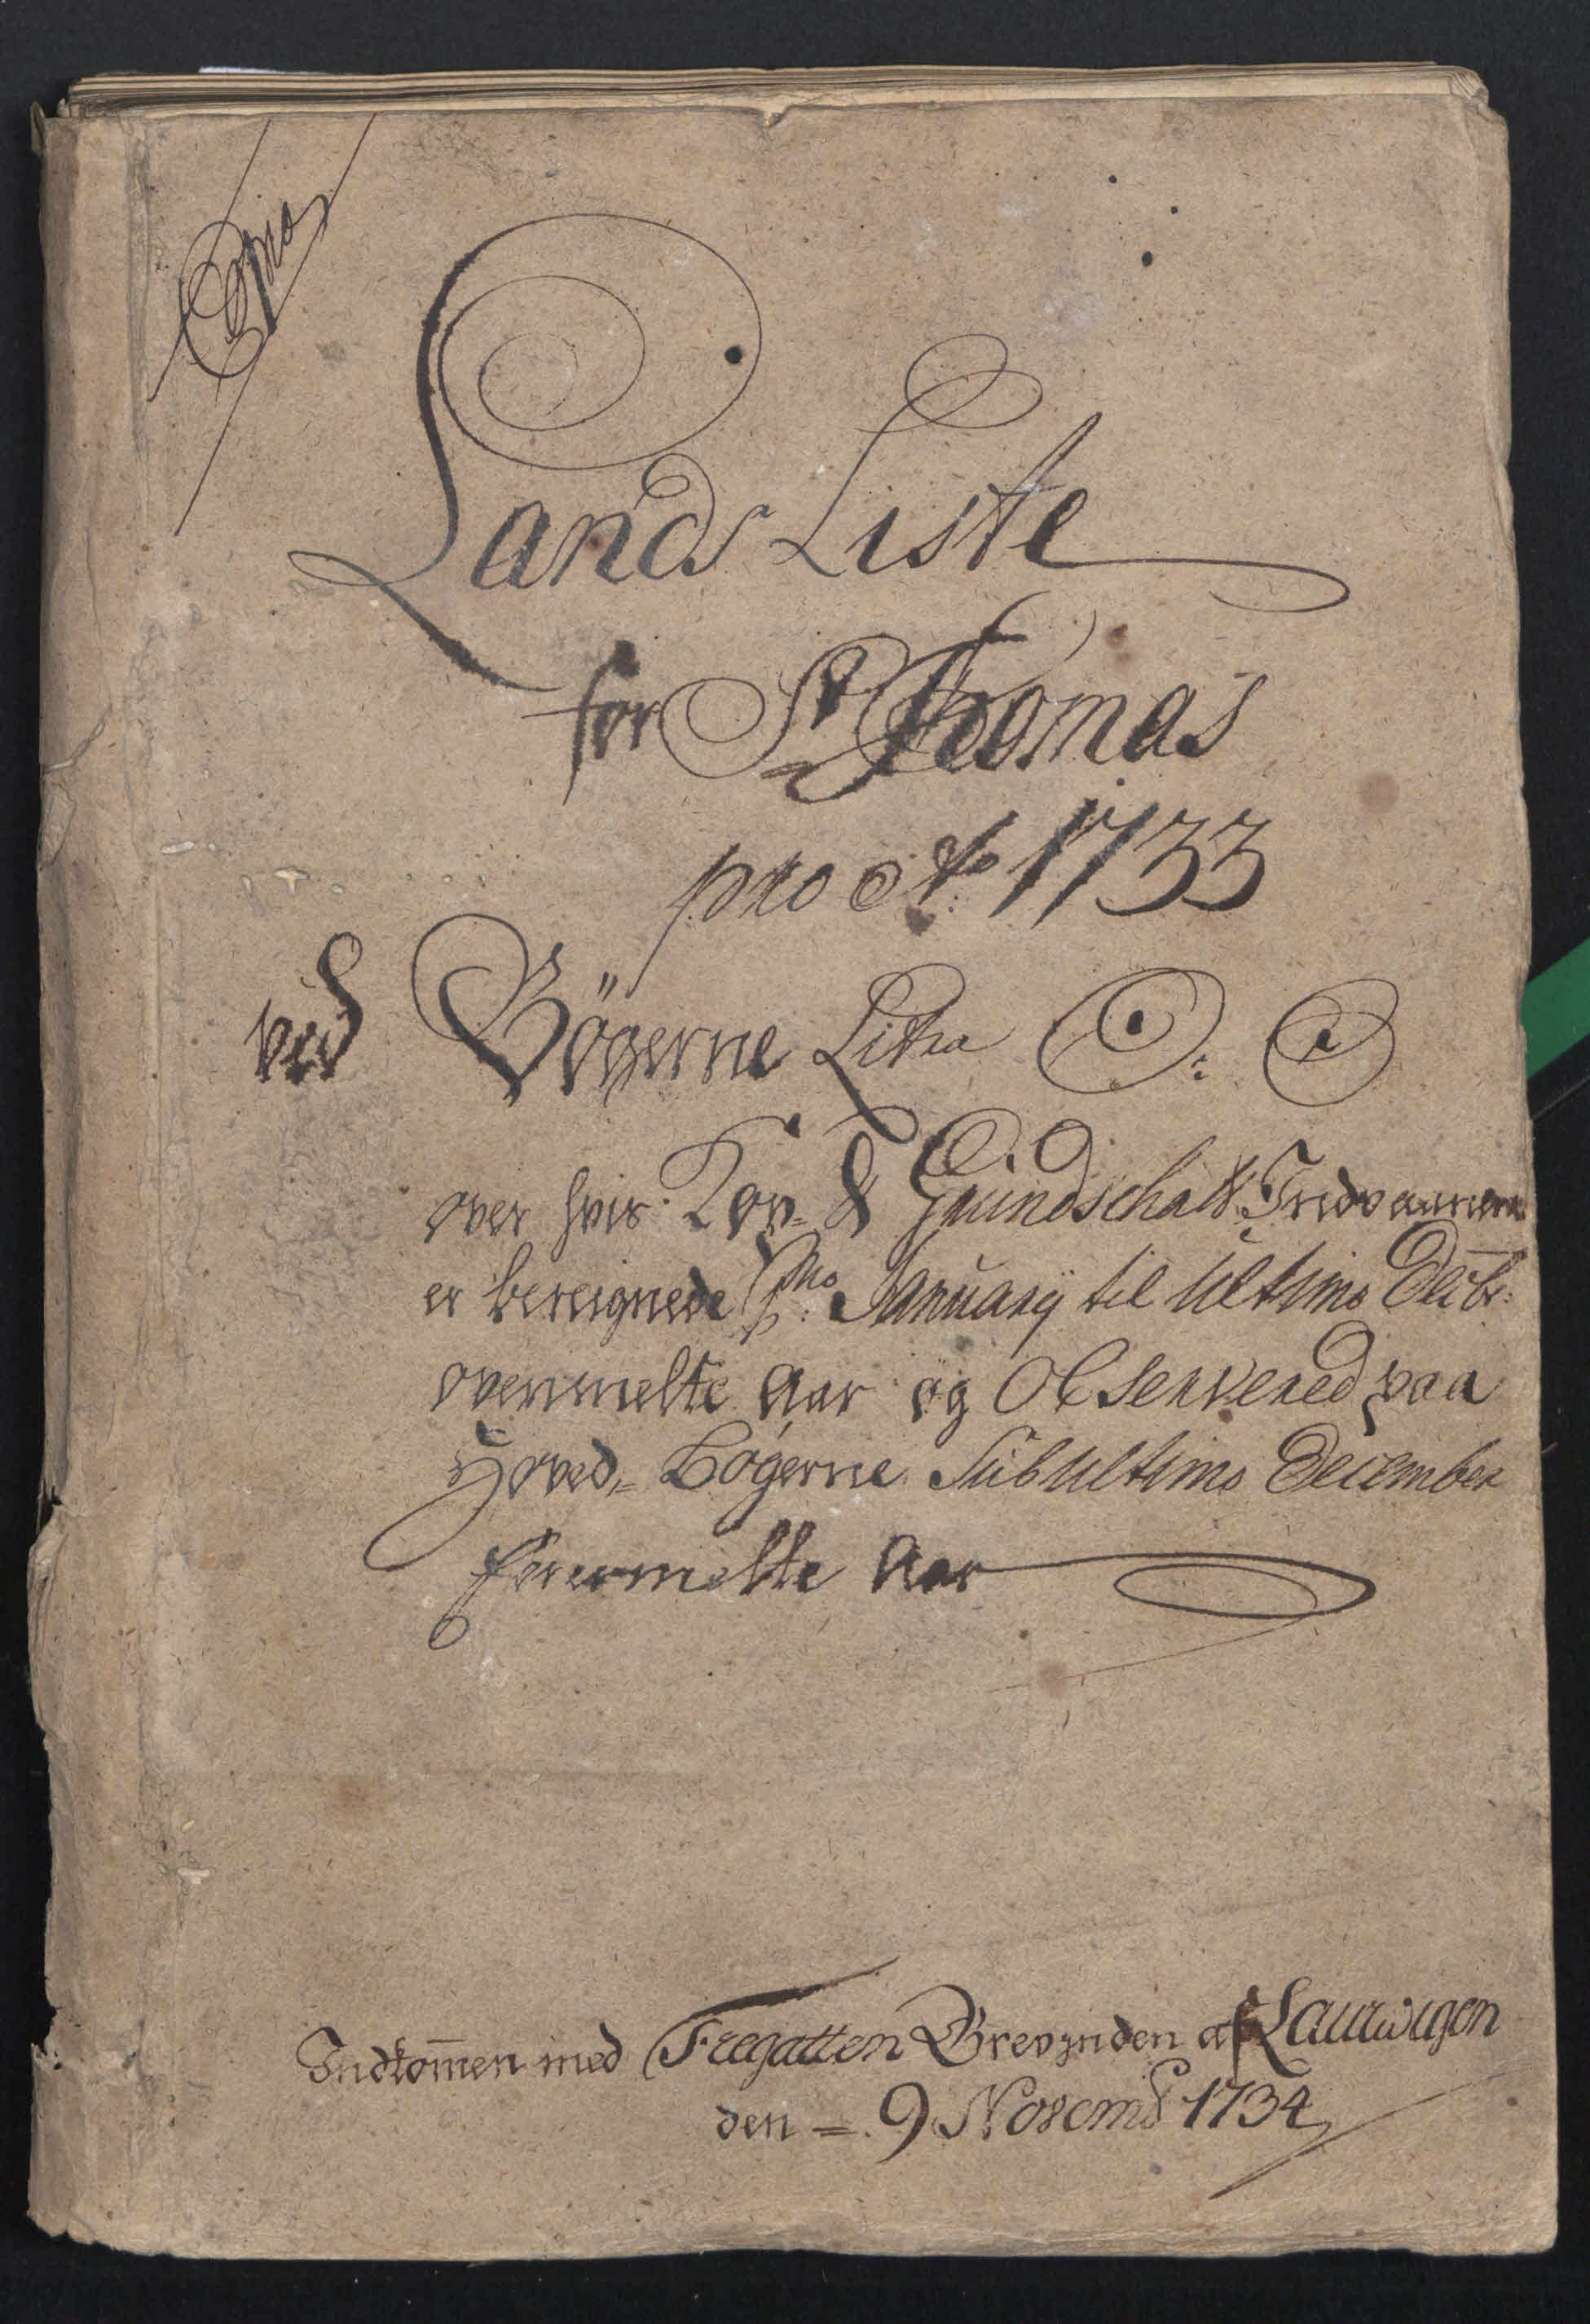 Copia
Lands Liste
for St Thomas
pro Ao 1733
ved Bögerne Litra O: O
over hvis Kop- & Grundschatt Indvaanerne
er bereignede Pmo January til Ultimo Decbr:
ovenmelte Aar og Observered paa
Hoved-Bögerne Sub Ultimo December
forermelte Aar
Indkom̄en med Fregatten Grevinden af Laurwigen
den = 9 Novemb 1734